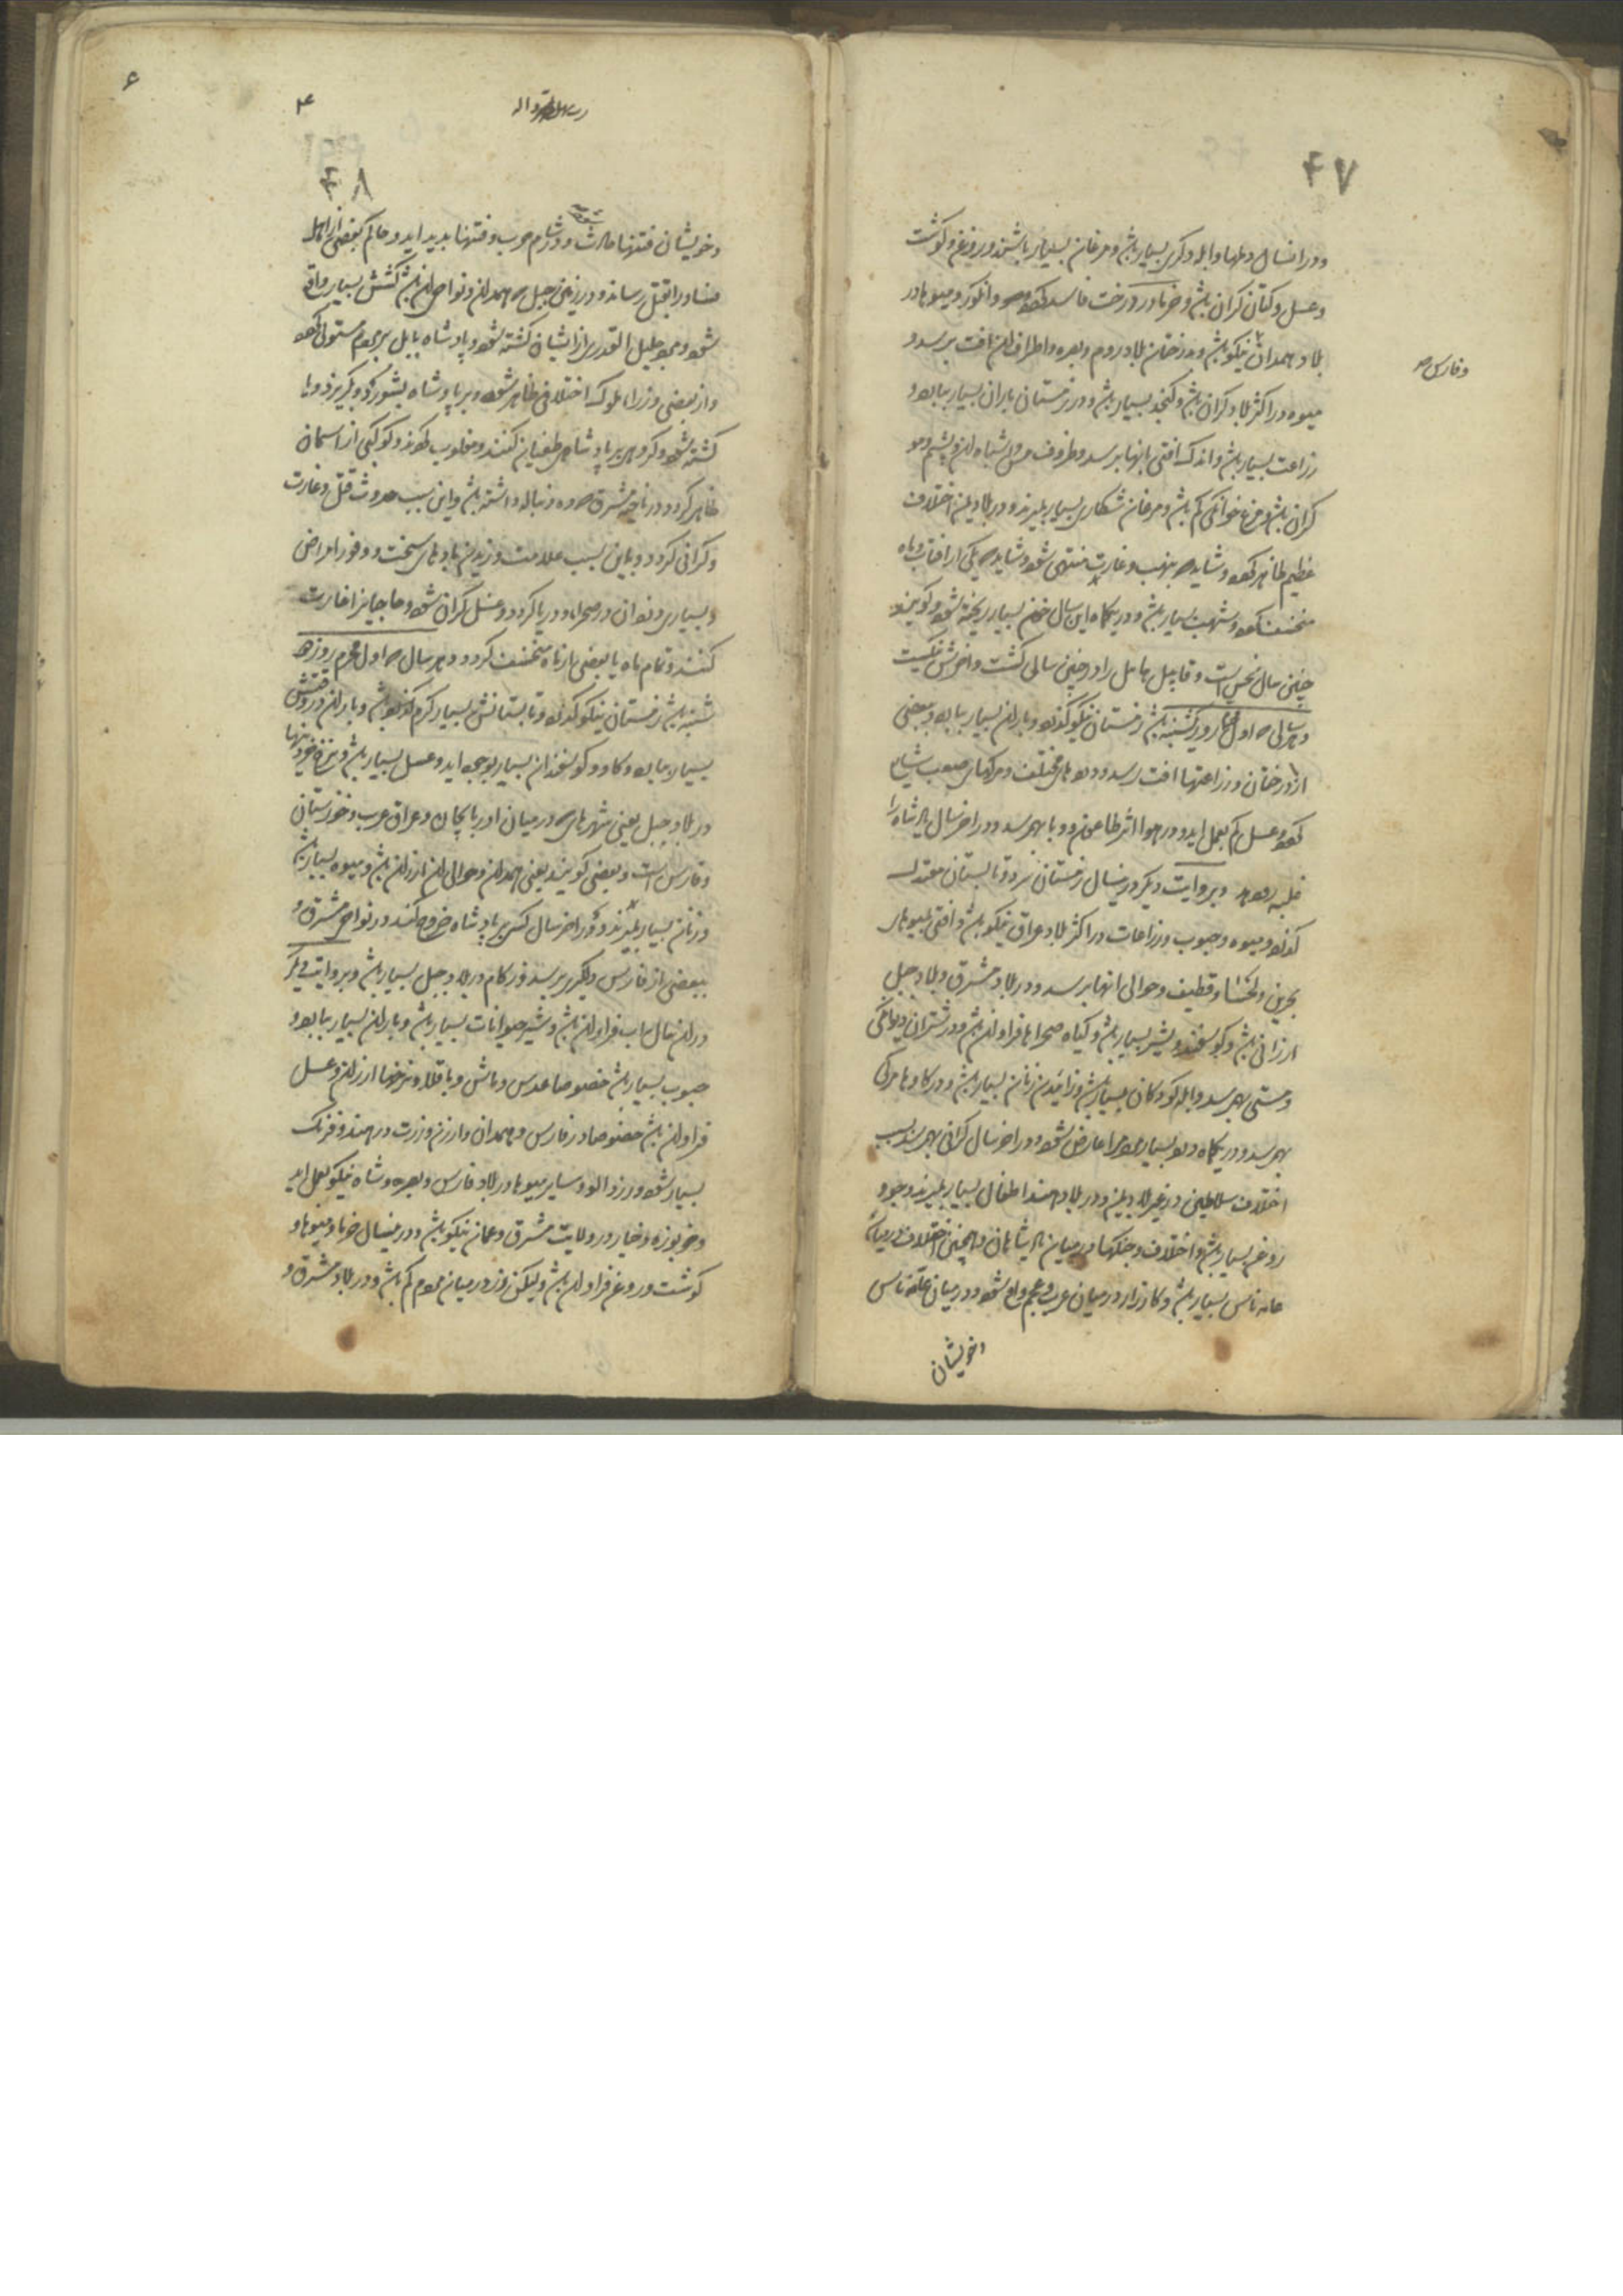 ۴۷
و درانسال دملها و ابله و کری بسیار باشد و مرغان بسیار باشند و روغن و گوشت
و عسل و کتان گران باشد و خرما در درخت فاسد شود و انگور و میوها در
بلاد همدان نیکو باشد و درختان بلاد روم و بصره و اطراف ان افت برسد و
و فارس
میوه در اکثر بلاد گران باشد و کنجد بسیار باشد و در زمستان باران بسیار ببارد و
زراعت بسیار باشد و اندک افتی بانها برسد و ظروف مس و اشباه ان و پشم و مو
گران باشد و مرغ خوانکی کم باشد و مرغان شکاری بسیار بمیرند و در بلاد یمن اختلاف
عظیم ظاهر شود و شاید که بنهب و غارت منتهی شود و شاید که یکی از افتاب و ماه
منخسف شود و شهب بسیار باشد و در یکماه این سال خون بسیار ریخته شود و گویند
چنین سال نحس است و قابیل هابیل را در چنین سالی کشت و اخرش نیکست
و هر سالی که اول محرم روز یکشنبه باشد زمستان نیکو گذرد و باران بسیار ببارد و ببعضی
از درختان و زراعتها افت رسد و دردهای مختلف و مرگهای صعب شایع
شود و عسل کم بعمل اید و در هوا اثر طاعون و وبا بهم رسد و در اخر سال پادشاه را
غلبه رو دهد و بروایت دیگر درینسال زمستان سرد و تابستان معتدل
گذرد و میوه و حبوب و زراعات در اکثر بلاد عراق نیکو باشد و افتی بمیوهای
بحرین و لحسا و قطیف و حوالی انها برسد و در بلاد مشرق و بلاد جبل
ارزانی باشد و گوسفند و شیر بسیار باشد و گیاه صحراها فراوان باشد و در شتران دیوانگی
و مستی بهم رسد و ابله کودکان بسیار باشد و زائیدن زنان بسیار باشد و در گاوها مرگی
بهم رسد و در یکماه درد بسیاری مردم را عارض شود و در اخر سال گرانی بهم رسد بسبب
اختلاف سلاطین در غیر بلاد یمن و در بلاد هند اطفال بسیار بمیرند و جو و
روغن بسیار باشد و اختلاف و جنگها در میان پادشاهان و همچنین اختلاف در میان
عامه ناس بسیار باشد و کارزار در میان عرب و عجم واقع شود و در میان عامه ناس
و خویشان
۶
۴
۴۸
و خویشان فتنها حادث شود و در شام حرب و فتنها پدید اید و حاکم بعضی از اهل
فساد را بقتل رساند و در زمین جبل که همدان و نواحی ان باشد کشش بسیار واقع
شود و مرد جلیل القدری از ایشان کشته شود و پادشاه بابل بر مردم مستولی شود
و از بعضی وزرا ملوک اختلافی ظاهر شود و بر پادشاه بشورند و بگریزد و یا
کشته شود و گروهی بر پادشاهی طغیان کنند و مغلوب گردند و کوکبی از اسمان
ظاهر گردد در ناحیه مشرق که دنباله داشته باشد و این سبب حدوث قتل و غارت
و گرانی گردد و باین سبب علامت وزیدن بادهای سخت و وفور امراض
و بسیاری دزدان در صحراها و دریا گردد و عسل گران شود و حاجیانرا غارت
کنند و تمام ماه یا بعضی از ماه منخسف گردد و هر سال که اول محرم روز دو
شنبه باشد زمستان نیکو گذرد و تابستانش بسیار گرم گذرد و باران در وقتش
بسیار ببارد و گاو و گوسفندان بسیار بوجود اید و عسل بسیار باشد و نرخ خوردنیها
در بلاد جبل یعنی شهرهای که در میان اذربایجان و عراق عرب و خوزستان
و فارس است و بعضی گویند یعنی همدان و حوالی ان ارزان باشد و میوه بسیار باشد
و زنان بسیار بمیرند و در اخر سال کسی بر پادشاه خروج کند در نواحی مشرق و
ببعضی از فارس دلگیری برسد و زکام در بلاد جبل بسیار باشد و بروایت دیگر
در ان سال اب فراوان باشد و شیر حیوانات بسیار باشد و باران بسیار ببارد و
حبوب بسیار باشد خصوصا عدس و ماش و باقلا و نرخها ارزان و عسل
فراوان باشد خصوصا در فارس و همدان و ارزن و زرت در هند و فرنک
بسیار شود و زردالو و سایر میوها در بلاد فارس و بصره و شام نیکو بعمل اید
و خربوزه و خیار در ولایت مشرق و عمان نیکو باشد و درینسال خرما و میوها و
گوشت و روغن فراوان باشد و لیکن زر در میان مردم کم باشد و در بلاد مشرق و